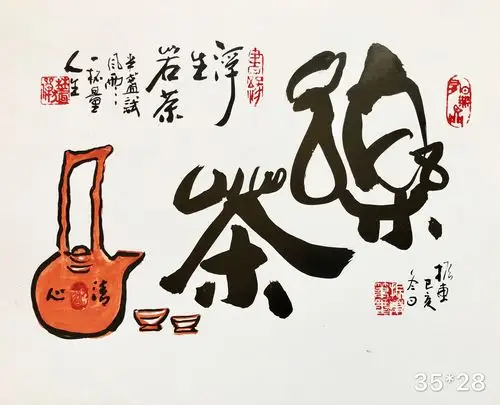 樂茶
浮生若茶
半盏試
風雨
一杯量
人生
清心
己亥
冬日
35*28